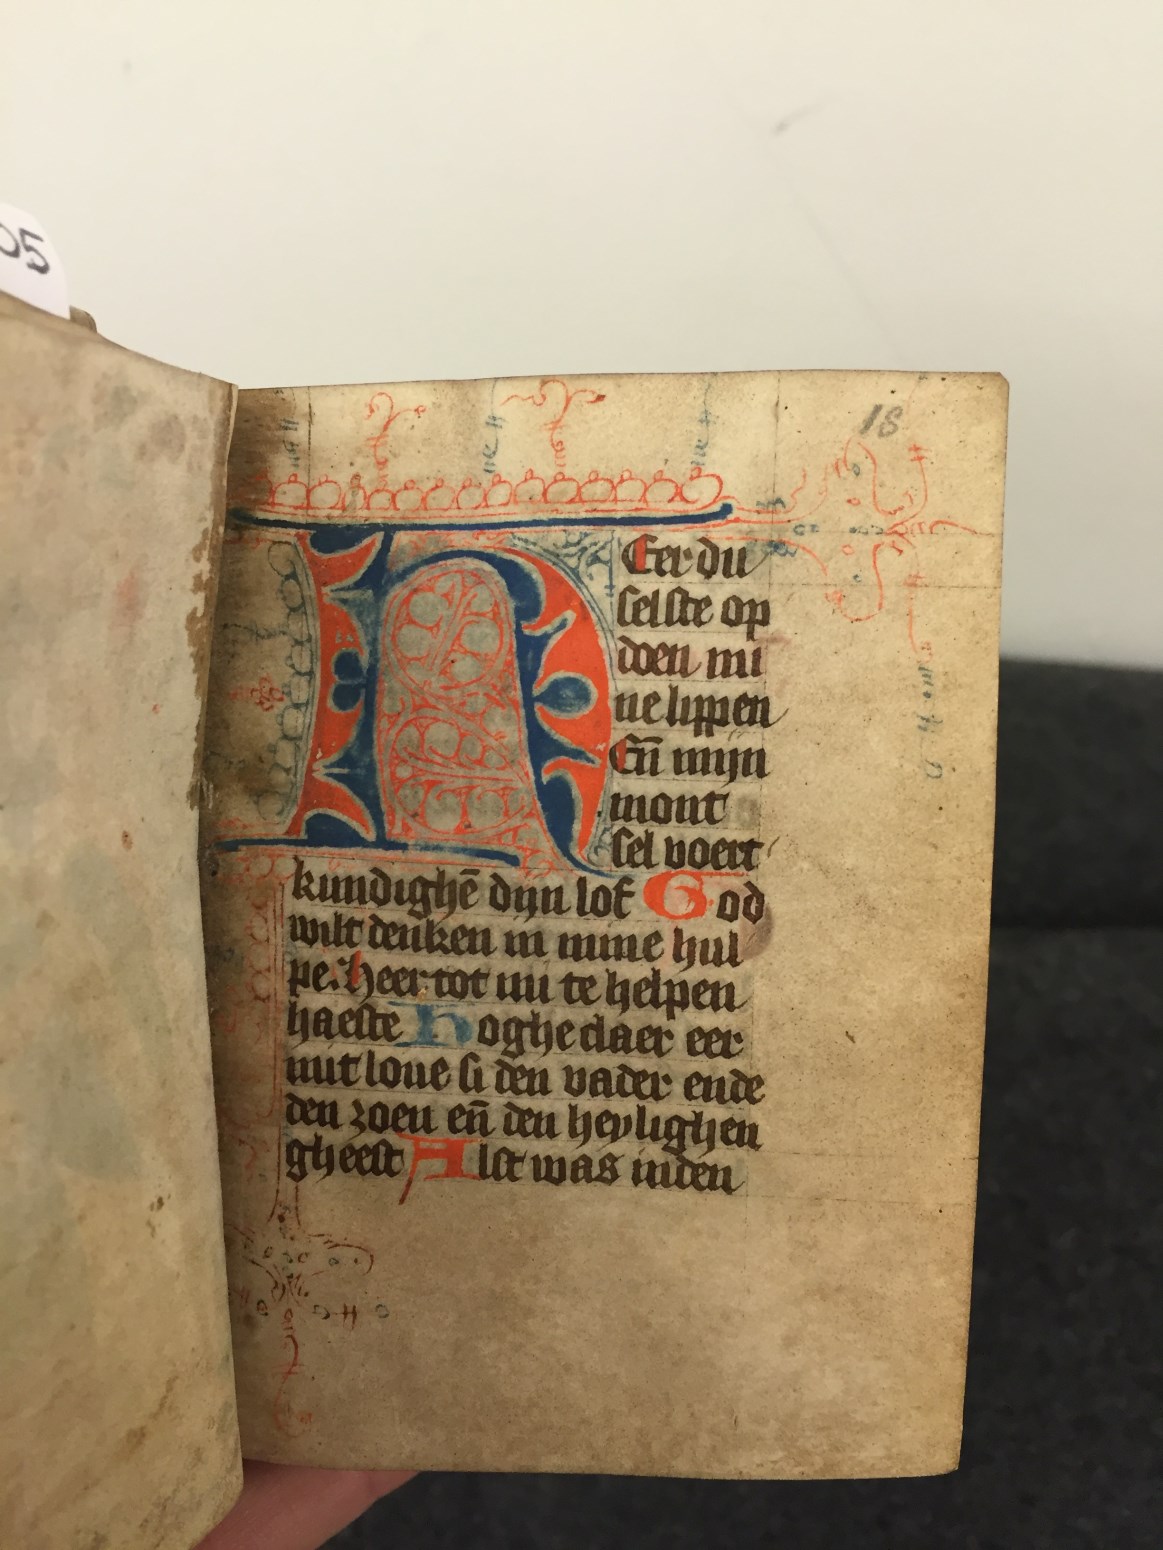 05
18
HEer du
selste op
doen mi
ne lippen
En̄ mijn
mont
sel voert
kundighē dijn lof God
wilt denken in mine hul
pe. heer tot mi te helpen
haeste Hoghe claer eer
mit loue si den vader ende
den zoen en̄ den heylighen
gheest Alst was inden